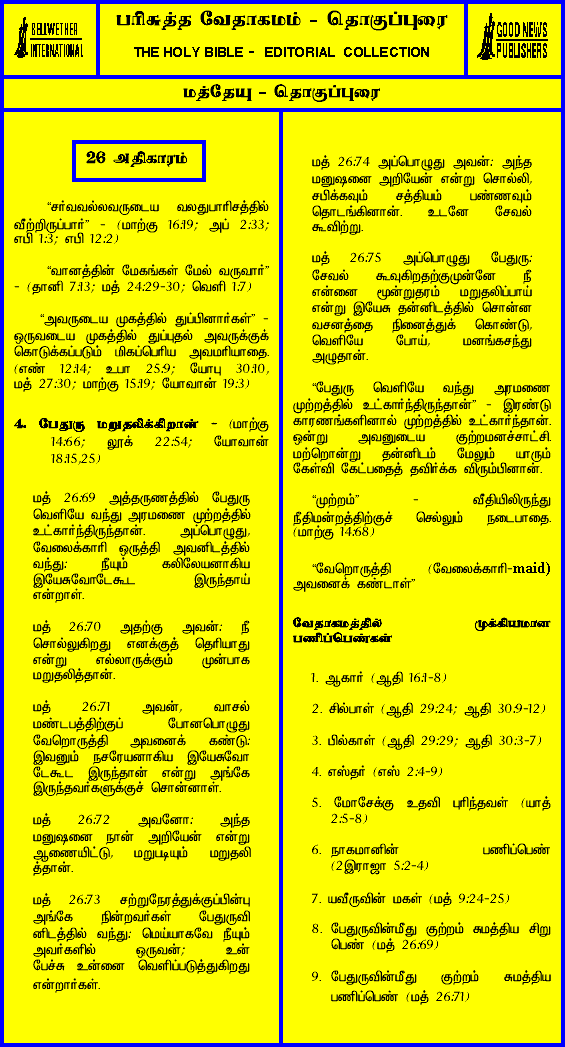 BELLWETHER
INTERNATIONAL
பரிசுத்த வேதாகமம் - தொகுப்புரை
THE HOLY BIBLE - EDITORIAL COLLECTION
GOOD NEWS
PUBLISHERS
மத்தேயு - தொகுப்புரை
26 அதிகாரம்
“சர்வவல்லவருடைய வலதுபாரிசத்தில்
வீற்றிருப்பார்” - (மாற்கு 16:19; அப் 2:33;
எபி 1:3; எபி 12:2)
“வானத்தின் மேகங்கள் மேல் வருவார்”
- (தானி 7:13; மத் 24:29-30; வெளி 1:7)
“அவருடைய முகத்தில் துப்பினார்கள்” -
ஒருவடைய முகத்தில் துப்புதல் அவருக்குக்
கொடுக்கப்படும் மிகப்பெரிய அவமரியாதை.
(எண் 12:14; உபா 25:9; யோபு 30:10,
மத் 27:30; மாற்கு 15:19; யோவான் 19:3)
4. பேதுரு மறுதலிக்கிறான் - (மாற்கு
14:66; லூக் 22:54; யோவான்
18:15,25)
மத் 26:69 அத்தருணத்தில் பேதுரு
வெளியே வந்து அரமணை முற்றத்தில்
உட்கார்ந்திருந்தான். அப்பொழுது,
வேலைக்காரி ஒருத்தி அவனிடத்தில்
வந்து: நீயும் கலிலேயனாகிய
இயேசுவோடேகூட இருந்தாய்
என்றாள்.
மத் 26:70 அதற்கு அவன்: நீ
சொல்லுகிறது எனக்குத் தெரியாது
என்று எல்லாருக்கும் முன்பாக
மறுதலித்தான்.
மத் 26:71 அவன், வாசல்
மண்டபத்திற்குப் போனபொழுது
வேறொருத்தி அவனைக் கண்டு:
இவனும் நசரேயனாகிய இயேசுவோ
டேகூட இருந்தான் என்று அங்கே
இருந்தவர்களுக்குச் சொன்னாள்.
மத் 26:72 அவனோ: அந்த
மனுஷனை நான் அறியேன் என்று
ஆணையிட்டு, மறுபடியும் மறுதலி
த்தான்.
மத் 26:73 சற்றுநேரத்துக்குப்பின்பு
அங்கே நின்றவர்கள் பேதுருவி
னிடத்தில் வந்து: மெய்யாகவே நீயும்
அவர்களில் ஒருவன்; உன்
பேச்சு உன்னை வெளிப்படுத்துகிறது
என்றார்கள்.
மத் 26:74 அப்பொழுது அவன்: அந்த
மனுஷனை அறியேன் என்று சொல்லி,
சபிக்கவும் சத்தியம் பண்ணவும்
தொடங்கினான். உடனே சேவல்
கூவிற்று.
மத் 26:75 அப்பொழுது பேதுரு:
சேவல் கூவுகிறதற்குமுன்னே நீ
என்னை மூன்றுதரம் மறுதலிப்பாய்
என்று இயேசு தன்னிடத்தில் சொன்ன
வசனத்தை நினைத்துக் கொண்டு,
வெளியே போய், மனங்கசந்து
அழுதான்.
“பேதுரு வெளியே வந்து அரமணை
முற்றத்தில் உட்கார்ந்திருந்தான்” - இரண்டு
காரணங்களினால் முற்றத்தில் உட்கார்ந்தான்.
ஒன்று அவனுடைய குற்றமனச்சாட்சி.
மற்றொன்று தன்னிடம் மேலும் யாரும்
கேள்வி கேட்பதைத் தவிர்க்க விரும்பினான்.
“முற்றம்” - வீதியிலிருந்து
நீதிமன்றத்திற்குச் செல்லும் நடைபாதை.
(மாற்கு 14:68)
“வேறொருத்தி (வேலைக்காரி-maid)
அவனைக் கண்டாள்”
வேதாகமத்தில் முக்கியமான
பணிப்பெண்கள்
1. ஆகார் (ஆதி 16:1-8)
2. சில்பாள் (ஆதி 29:24; ஆதி 30:9-12)
3. பில்காள் (ஆதி 29:29; ஆதி 30:3-7)
4. எஸ்தர் (எஸ் 2:4-9)
5. மோசேக்கு உதவி புரிந்தவள் (யாத்
2:5-8)
6. நாகமானின் பணிப்பெண்
(2இராஜா 5:2-4)
7. யவீருவின் மகள் (மத் 9:24-25)
8. பேதுருவின்மீது குற்றம் சுமத்திய சிறு
பெண் (மத் 26:69)
9. பேதுருவின்மீது குற்றம் சுமத்திய
பணிப்பெண் (மத் 26:71)